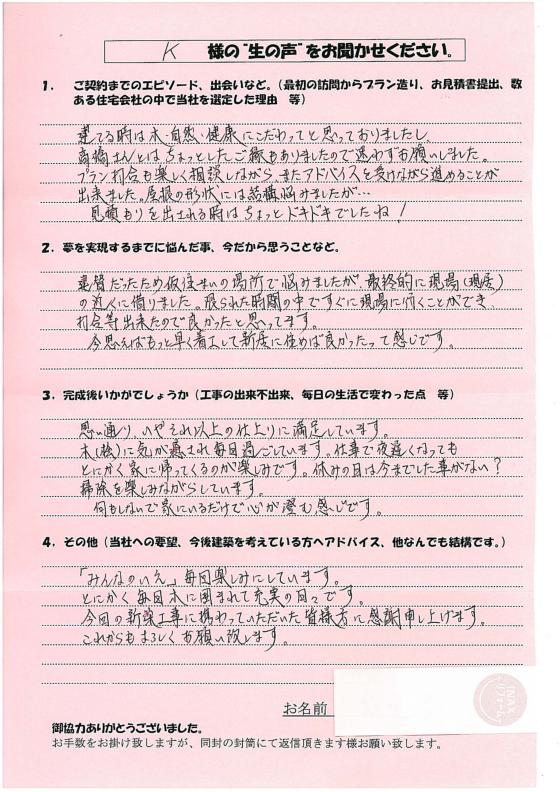 K 様の"生の声"をお聞かせください。
1. ご契約までのエピソード、出会いなど。(最初の訪問からプラン造り、お見積書提出、数
ある住宅会社の中で当社を選定した理由 等)
建てる時は木、自然、健康にこだわってと思っておりましたし
高橋さんとはちょっとしたご縁もありましたので迷わずお願いしました。
プラン打合も楽しく相談しながら、またアドバイスを受けながら進めることが
出来ました。屋根の形状には結構悩みましたが…
見積もりを出される時はちょっとドキドキでしたね!
2. 夢を実現するまでに悩んだ事、今だから思うことなど。
建替だったため仮住まいの場所で悩みましたが、最終的に現場(現居)
の近くに借りました。限られた時間の中ですぐに現場に行くことができ、
打合等出来たので良かったと思ってます。
今思えばもっと早く着工して新居に住めば良かったって感じです。
3. 完成後いかがでしょうか(工事の出来不出来、毎日の生活で変わった点 等)
思い通り、いやそれ以上の仕上りに満足しています。
木(桧)に気が癒され毎日過ごしています。仕事で夜遅くなっても
とにかく家に帰ってくるのが楽しみです。休みの日は今までした事がない?
掃除を楽しみながらしています。
何もしないで家にいるだけで心が澄む感じです。
4. その他(当社への要望、今後建築を考えている方へアドバイス、他なんでも結構です。)
「みんなのいえ」毎回楽しみにしています。
とにかく毎日木に囲まれて充実の日々です。
今回の新築工事に携わっていただいた皆様方に感謝申し上げます。
これからもよろしくお願い致します。
お名前
INAX
リフォーム
御協力ありがとうございました。
お手数をお掛け致しますが、同封の封筒にて返信頂きます様お願い致します。